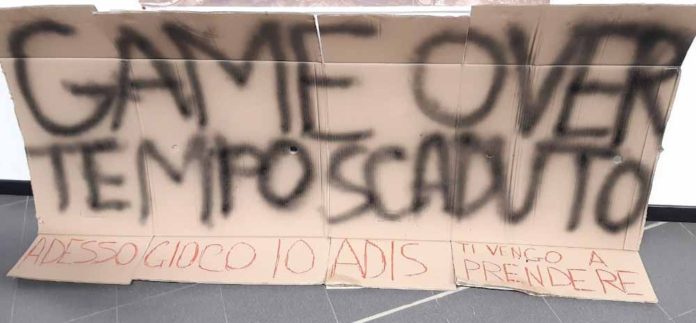 GAME OVER
TEMPO SCADUTO
ADESSO GIOCO IO ADIS TI VENGO A
PRENDERE